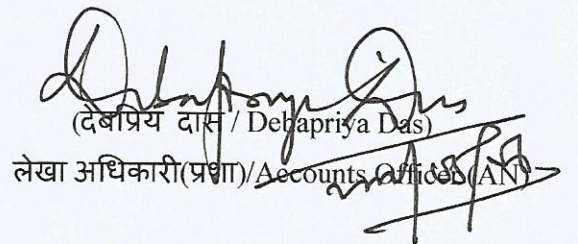 Debapriya Das
(देबप्रिय दास / Debapriya Das)
लेखा अधिकारी(प्रशा)/Accounts Officer (AN)